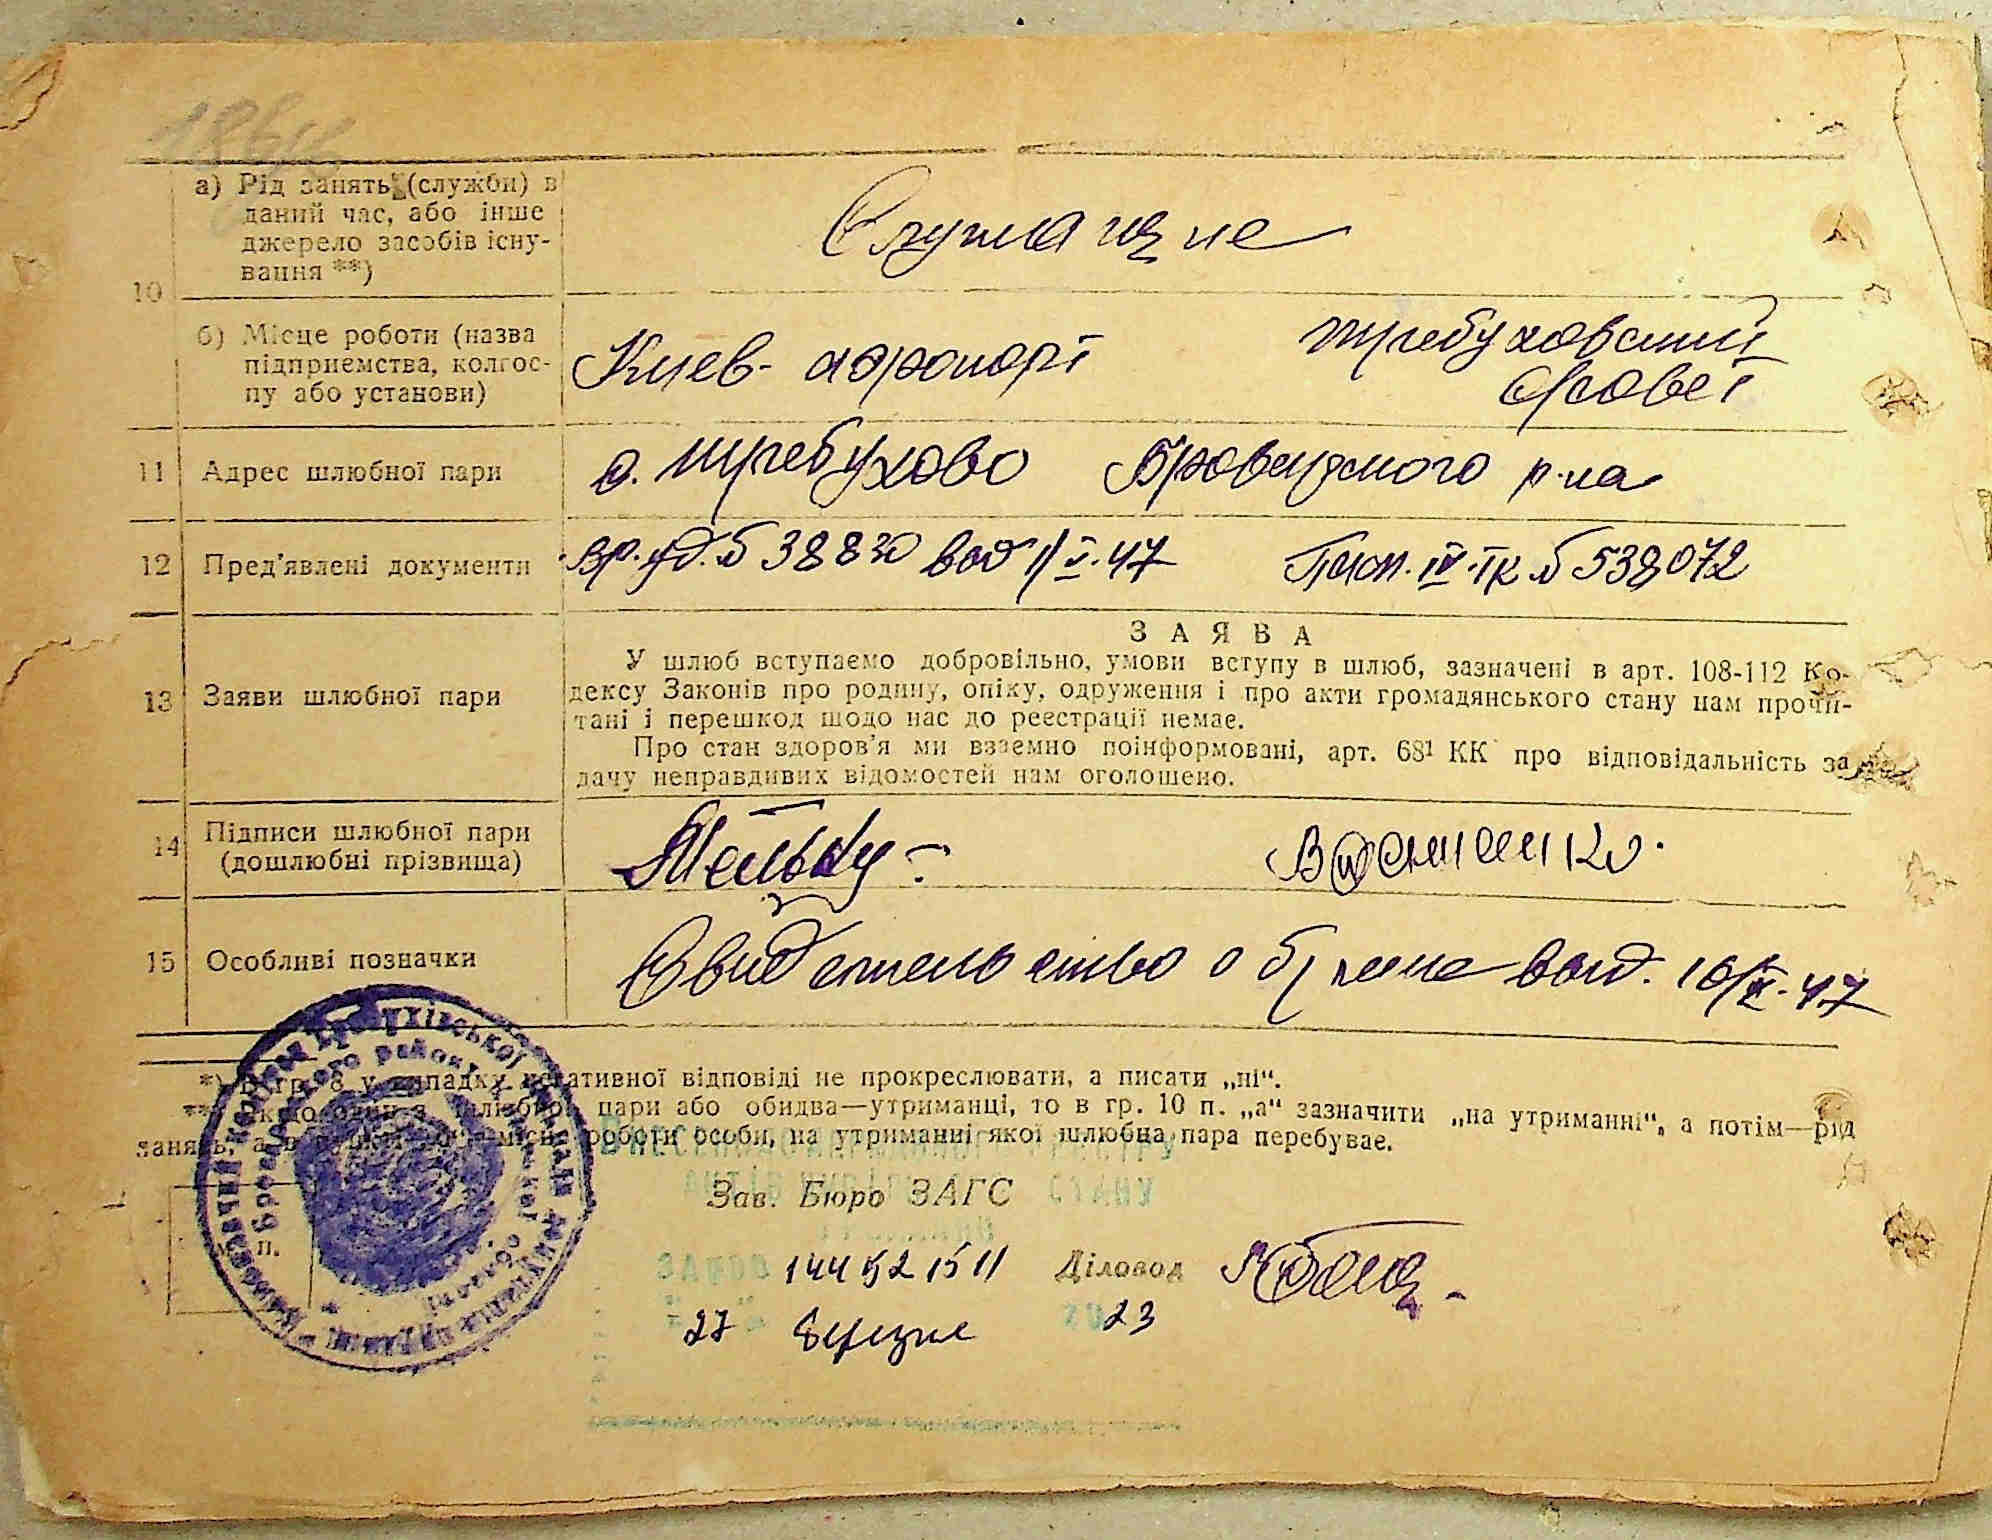 а) Рід занять (служби) в
даний час, або інше
джерело засобів існу-
вання **)
Служащие
10
б) Місце роботи (назва
підприємства, колгос-
пу або установи)
Киев - аэропорт
Требуховский
с/совет
11 Адрес шлюбної пари с. Требухово Броварского р-на
12 Пред'явлені документи Вр. уд. № 38830 выд 1/V-47 Пасп. IV-ТК № 538072
13 Заяви шлюбної пари
ЗАЯВА
У шлюб вступаємо добровільно, умови вступу в шлюб, зазначені в арт. 108-112 Ко-
дексу Законів про родину, опіку, одруження і про акти громадянського стану нам прочи-
тані і перешкод щодо нас до реєстрації немає.
Про стан здоров'я ми взаємно поінформовані, арт. 68¹ КК про відповідальність за
дачу неправдивих відомостей нам оголошено.
14 Підписи шлюбної пари
(дошлюбні прізвища)
15 Особливі позначки Свидетельство о браке выд. 16/IX-47
*) В гр. 8 у випадку негативної відповіді не прокреслювати, а писати „ні“.
**) Якщо один з шлюбної пари або обидва—утриманці, то в гр. 10 п. „а“ зазначити „на утриманні“, а потім—рід
занять, а в місце роботи особи, на утриманні якої шлюбна пара перебуває.
СТАНУ
Зав. Бюро ЗАГС
м. п.
Діловод
27 березня 2023